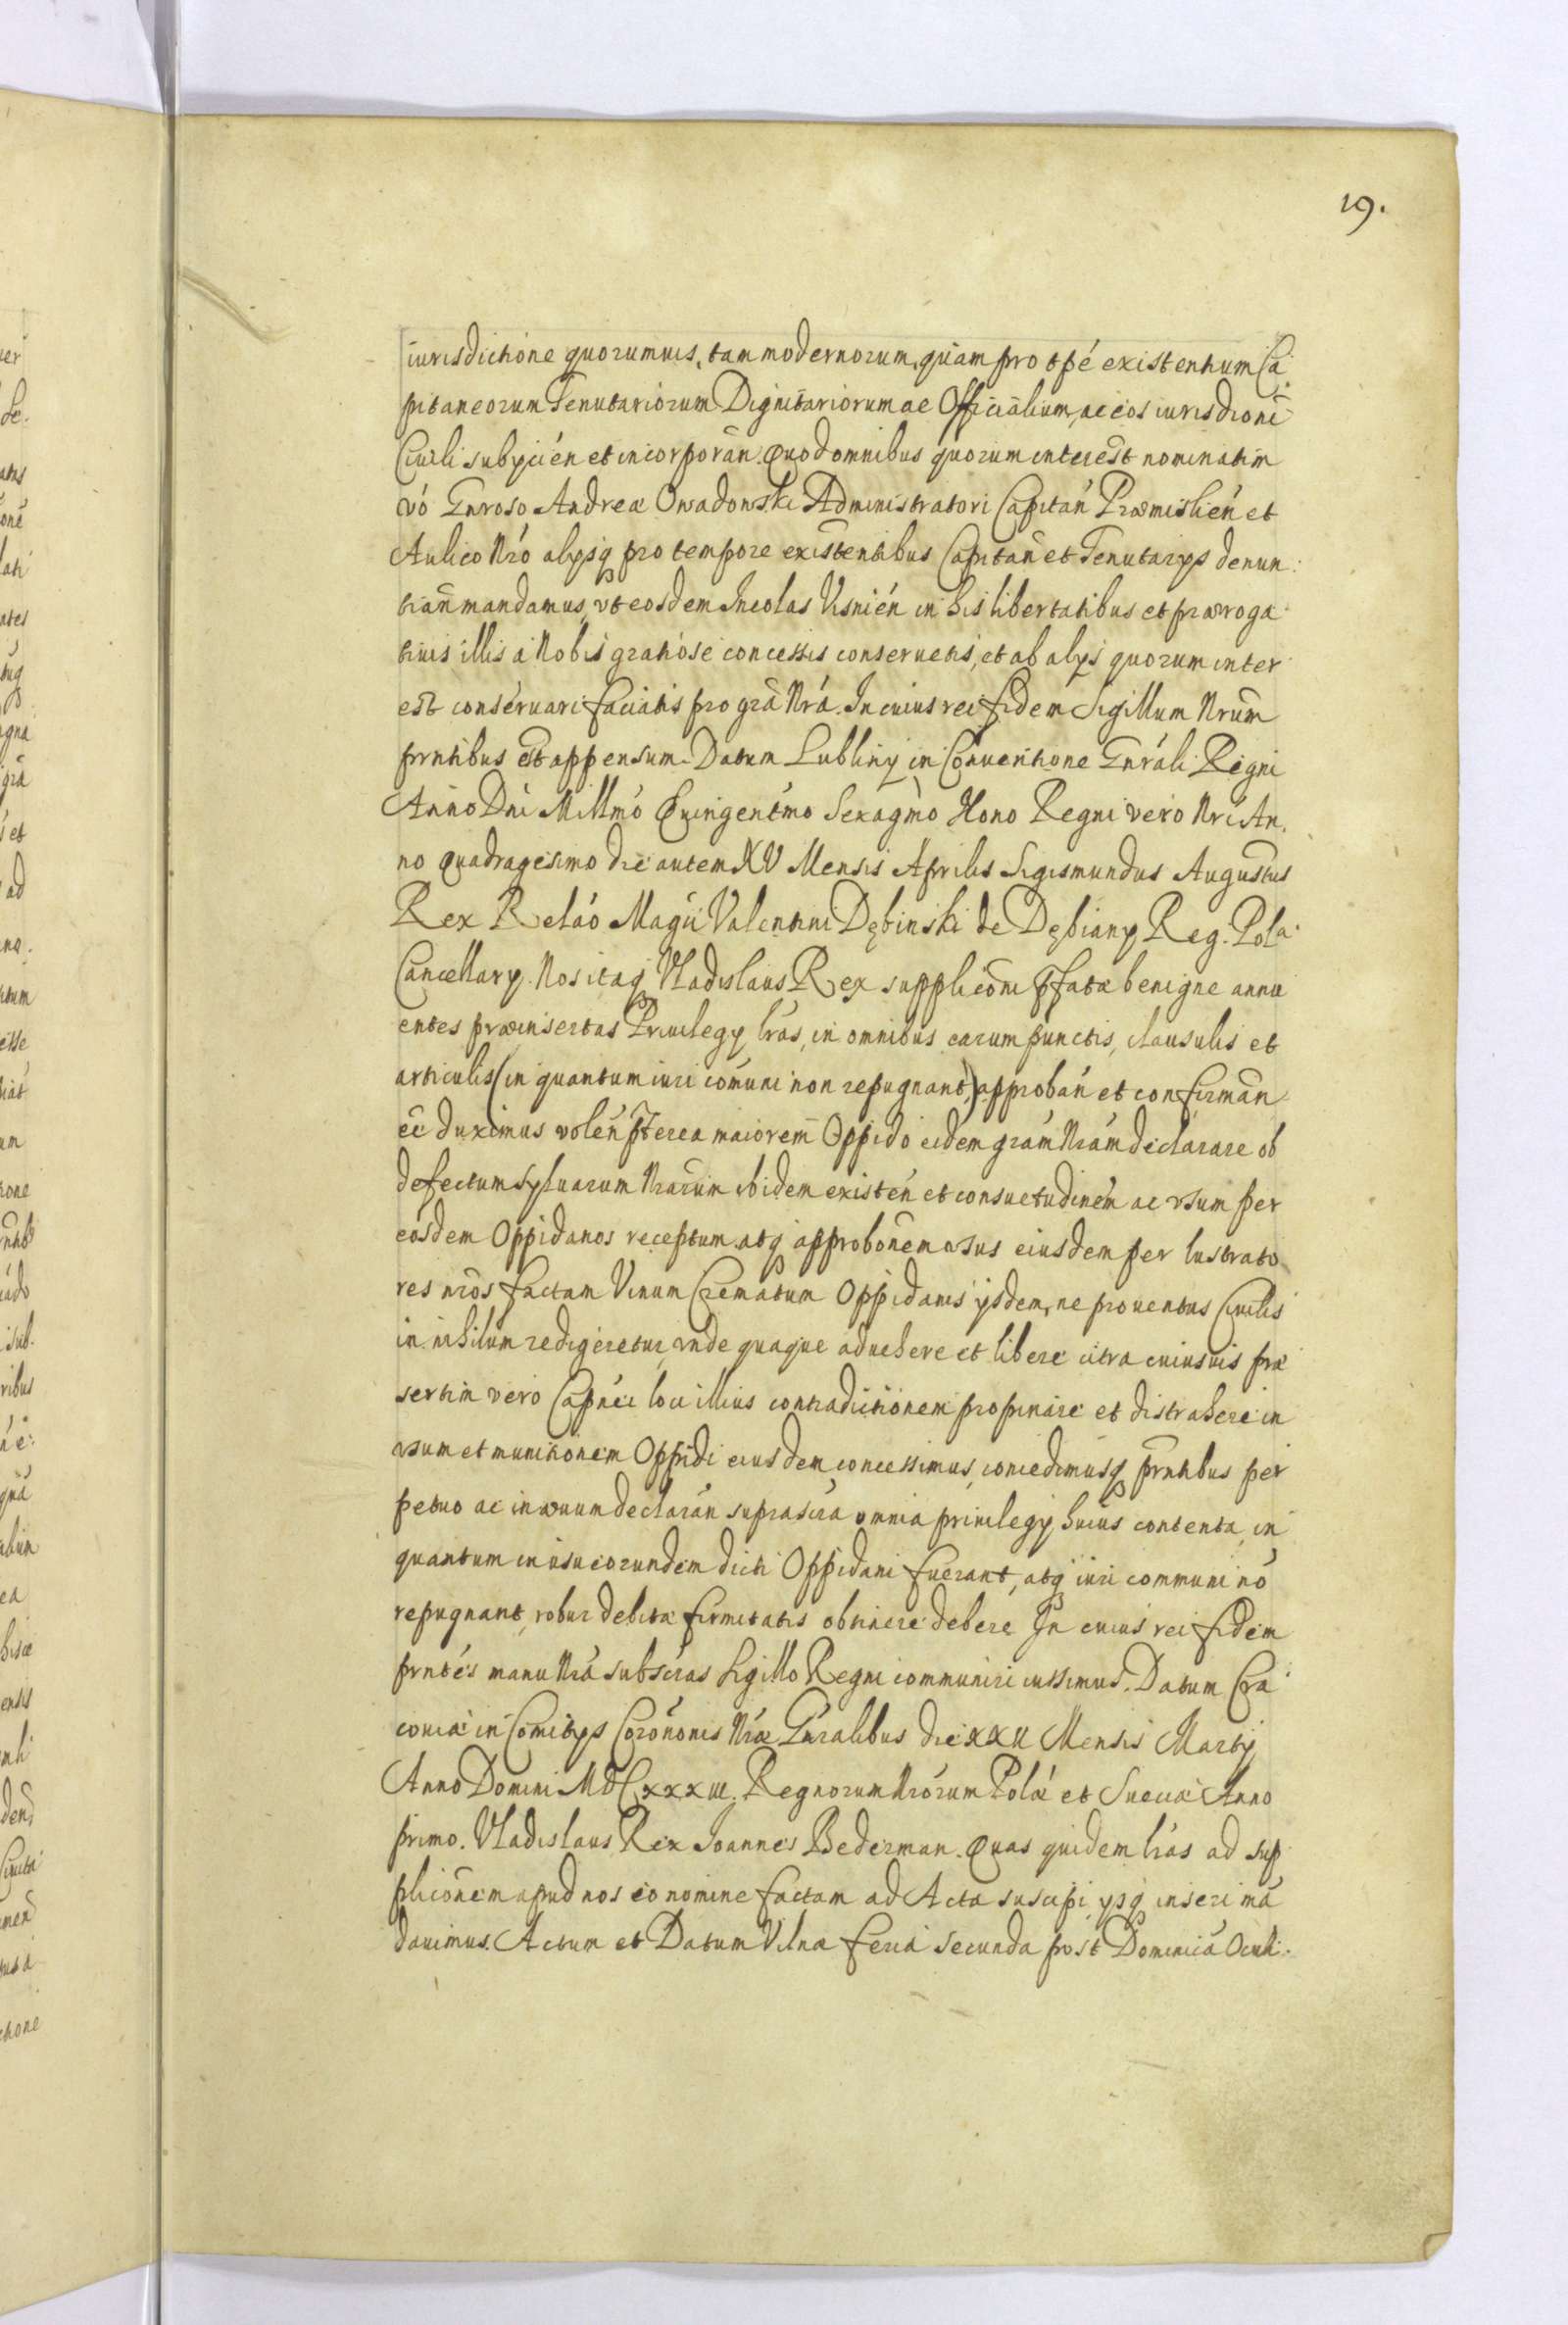 19.
iurisdictione quorumuis, tam modernorum, quam pro tpé existentium Ca
pitaneorum Tenutariorum Dignitariorum ac Officialium, ac eos iurisdioni
Ciuili subÿcién et incorporan. Quod omnibus quorum interest nominatim
vó Gnroso Andreæ Owadowski Administratori Capitan Præmislién et
Aulico Nró alÿsq pro tempore existentibus Capitan et Tenutarÿs denun
tian mandamus, vt eosdem Incolas Visnién in his libertatibus et præroga
tiuis illis a Nobis gratiose concessis conseruetis, et ab alÿs quorum inter
est conseruari faciatis pro grã Nrá. In cuius rei fidem Sigillum Nrum
prntibus est appensum. Datum Lublinÿ in Conuentione Gnráli Regni
Anno Dni Millmó Quingentmo Sexagmo Nono Regni vero Nri An
no Quadragesimo die autem XV Mensis Aprilis Sigismundus Augustus
Rex Relaó Magci Valentini Dębinski de Dębiany Reg. Pola
Cancellarÿ. Nos itaq Vladislaus Rex suppliconi pfatæ benigne annu
entes præinsertas Priuilegÿ lrás, in omnibus earum punctis, clausulis et
articulis (in quantum iuri comuni non repugnant,) approbán et confirmán
ee duximus volén pterea maiorem Oppido eidem gram Nram declarare ob
defectum syluarum Nrarum ibidem existén et consuetudinem ac vsum per
eosdem Oppidanos receptum atq approbonem vsus eiusdem per lustrato
res nros factam Vinum Crematum Oppidanis ÿsdem, ne prouentus Ciuilis
in nihilum redigeretur, vnde quaque aduehere et libere citra cuiusuis præ
sertim vero Capnei loci illius contradictionem propinare et distrahere in
vsum et munitionem Oppidi eiusdem concessimus, concedimusq prntibus per
petuo ac in æuum declarán suprascra omnia priuilegÿ huius contenta, in
quantum in usu eorundem dicti Oppidani fuerant, atq iuri communi nó
repugnant, robur debitæ firmitatis obtinere debere. In cuius rei fidem
prntés manu Nrá subscras Sigillo Regni communiri iussimus. Datum Cra
couiæ in Comitÿs Coronónis Nræ Gnralibus die XXII Mensis Martÿ
Anno Domini MDCXXXIII. Regnorum Nrórum Polæ et Sueciæ Anno
primo. Vladislaus Rex Ioannes Bederman. Quas quidem lrás ad sup
pliconem apud nos eo nomine factam ad Acta suscipi, ÿsq inseri mã
dauimus. Actum et Datum Vilnæ feria secunda post Dominicã Oculi.